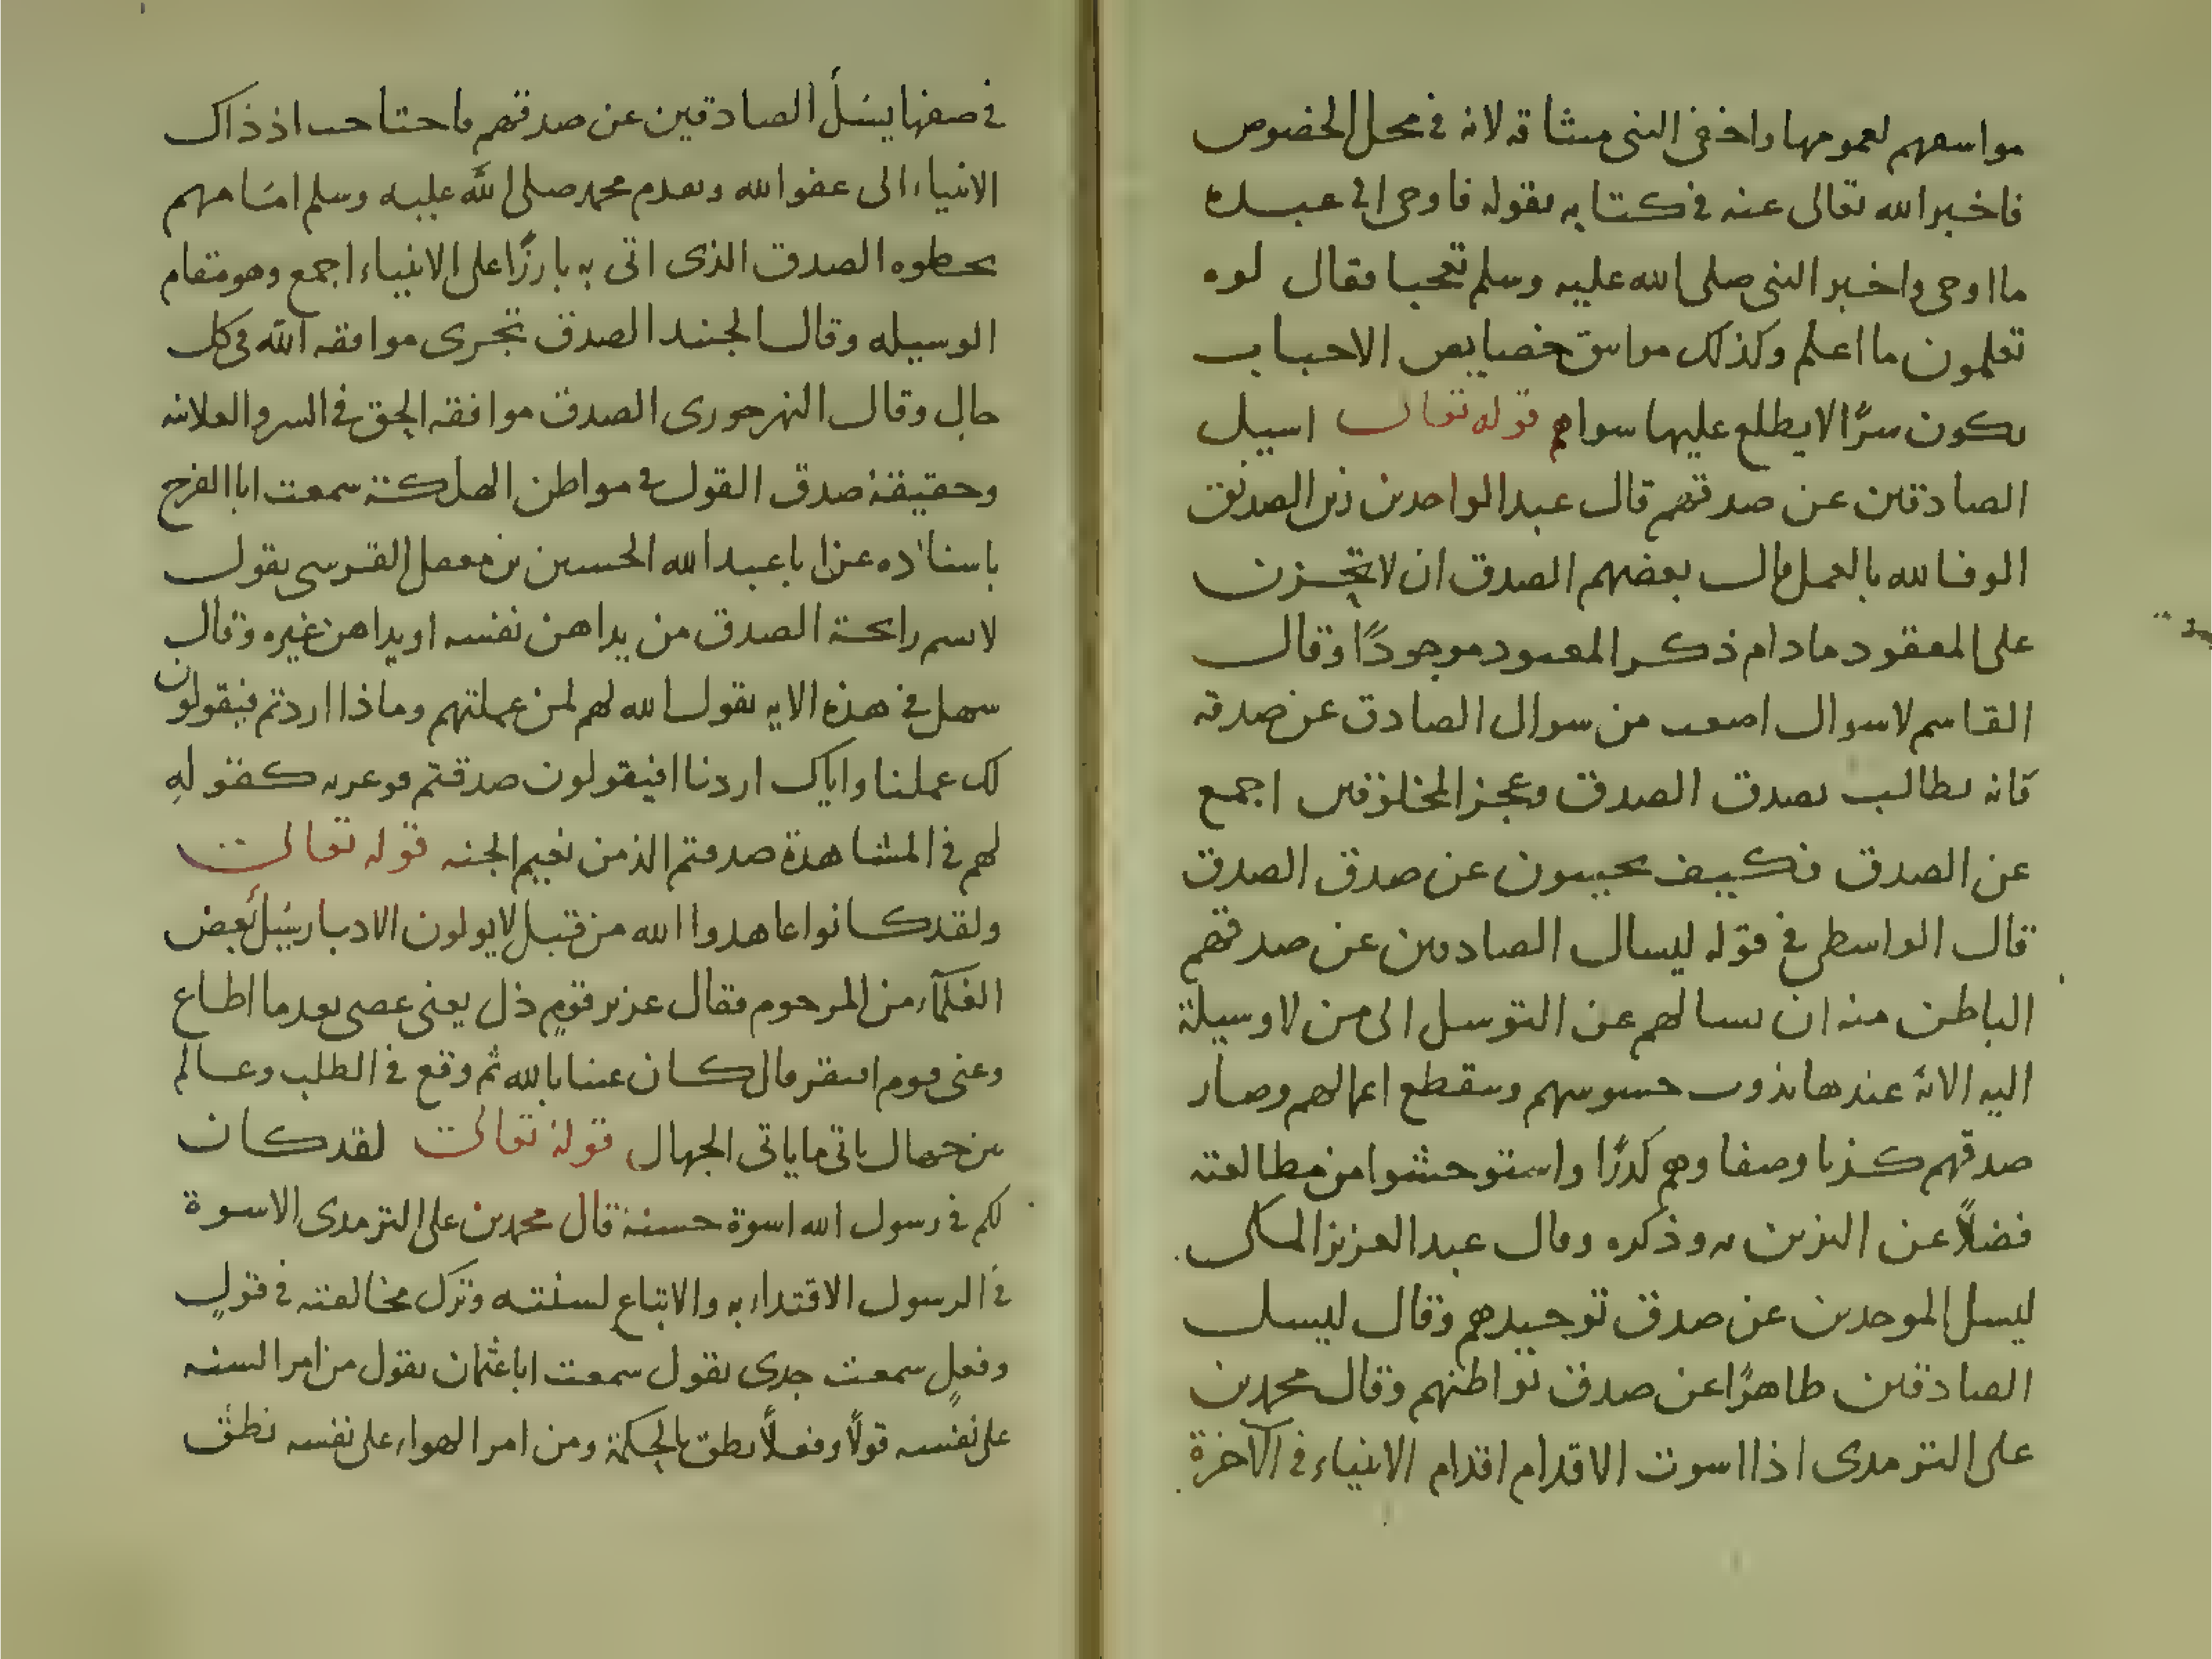 مواسعهم لعمومها واخفى النبى مىثاقه لانه فى محل الخصوص
فاخبر الله تعالى عنه فى كتابه بقوله فاوحى الى عبده
ما اوحى واخبر النبى صلى الله عليه وسلم تعجبا فقال لوه
تعلمون ما اعلم وكذلك مواسق خصايص الاحباب
يكون سرًا لا يطلع عليها سواهم قوله تعالى اسيل
الصادقين عن صدقهم قال عبد الواحد بن زيد الصدق
الوفا لله بالعمل قال بعضهم الصدق ان لا تحزن
على المفقود مادام ذكر المعبود موجودًا وقال
القاسم لا سوال اصعب من سوال الصادق عن صدقه
فانه يطالب بصدق الصدق وعجز المخلوقين اجمع
عن الصدق فكييف يجيبون عن صدق الصدق
قال الواسطى فى قوله ليسال الصادقين عن صدقهم
الباطن منه ان يسالهم عن التوسل الى من لا وسيلة
اليه الا به عندها يذوب حسوسهم وسقطع اعمالهم وصار
صدقهم كذبا وصفاوهم كدرًا واستوحشوا من مطالعته
فضلاً عن التزين به وذكره وقال عبد العزيز المكى
ليسل الموحدين عن صدق توحيدهم وقال ليسل
الصادقين ظاهرًا عن صدق بواطنهم وقال محمد بن
على الترمدى اذا اسوت الاقدام اقدام الانبياء فى الآخرة
فى صفها يسئل الصادقين عن صدقهم فاحتاجت اذ ذاك
الانبياء الى عفو الله وتقدم محمد صلى الله عليه وسلم امامهم
بخطوه الصدق الذى اتى به بارزًا على الانبياء اجمع وهو مقام
الوسيله وقال الجنيد الصدق تجرى موافقه الله فى كل
حال وقال النهرجورى الصدق موافقه الحق فى السر والعلانيه
وحقيقة صدق القول فى مواطن الهلكة سمعت ابا الفرج
باسناده عن ابا عبد الله الحسين بن معصل القرسى يقول
لا يسم رائحة الصدق من يداهن نفسه او يداهن غيره وقال
سهل فى هذه الايه يقول الله لهم لمن عملتهم وماذا اردتم فيقولون
لك عملنا واياك اردنا افيقولون صدقتم فوعزته كقوله
لهم فى المشاهدة صدقتم الذ من نعيم الجنه قوله تعالى
ولقد كانوا عاهدوا الله من قبل لا يولون الادبار سئل بعض
الحكمآء من المرحوم فقال عزيز قومٍ ذل يعنى عصى بعد ما اطاع
وغنى قوم افتقر قال كان غنيا بالله ثم وقع فى الطلب وعالم
بين جهال ياتى ما ياتى الجهال قوله تعالى لقد كان
لكم فى رسول الله اسوة حسنة قال محمد بن على الترمدى الاسوة
فى الرسول الاقتداء به والاتباع لسنته وترك مخالفته فى قولٍ
وفعلٍ سمعت جدى يقول سمعت ابا عثمان يقول من امر السنه
على نفسه قولاً وفعلاً نطق بالحكمة ومن امر الهواء على نفسه نطق